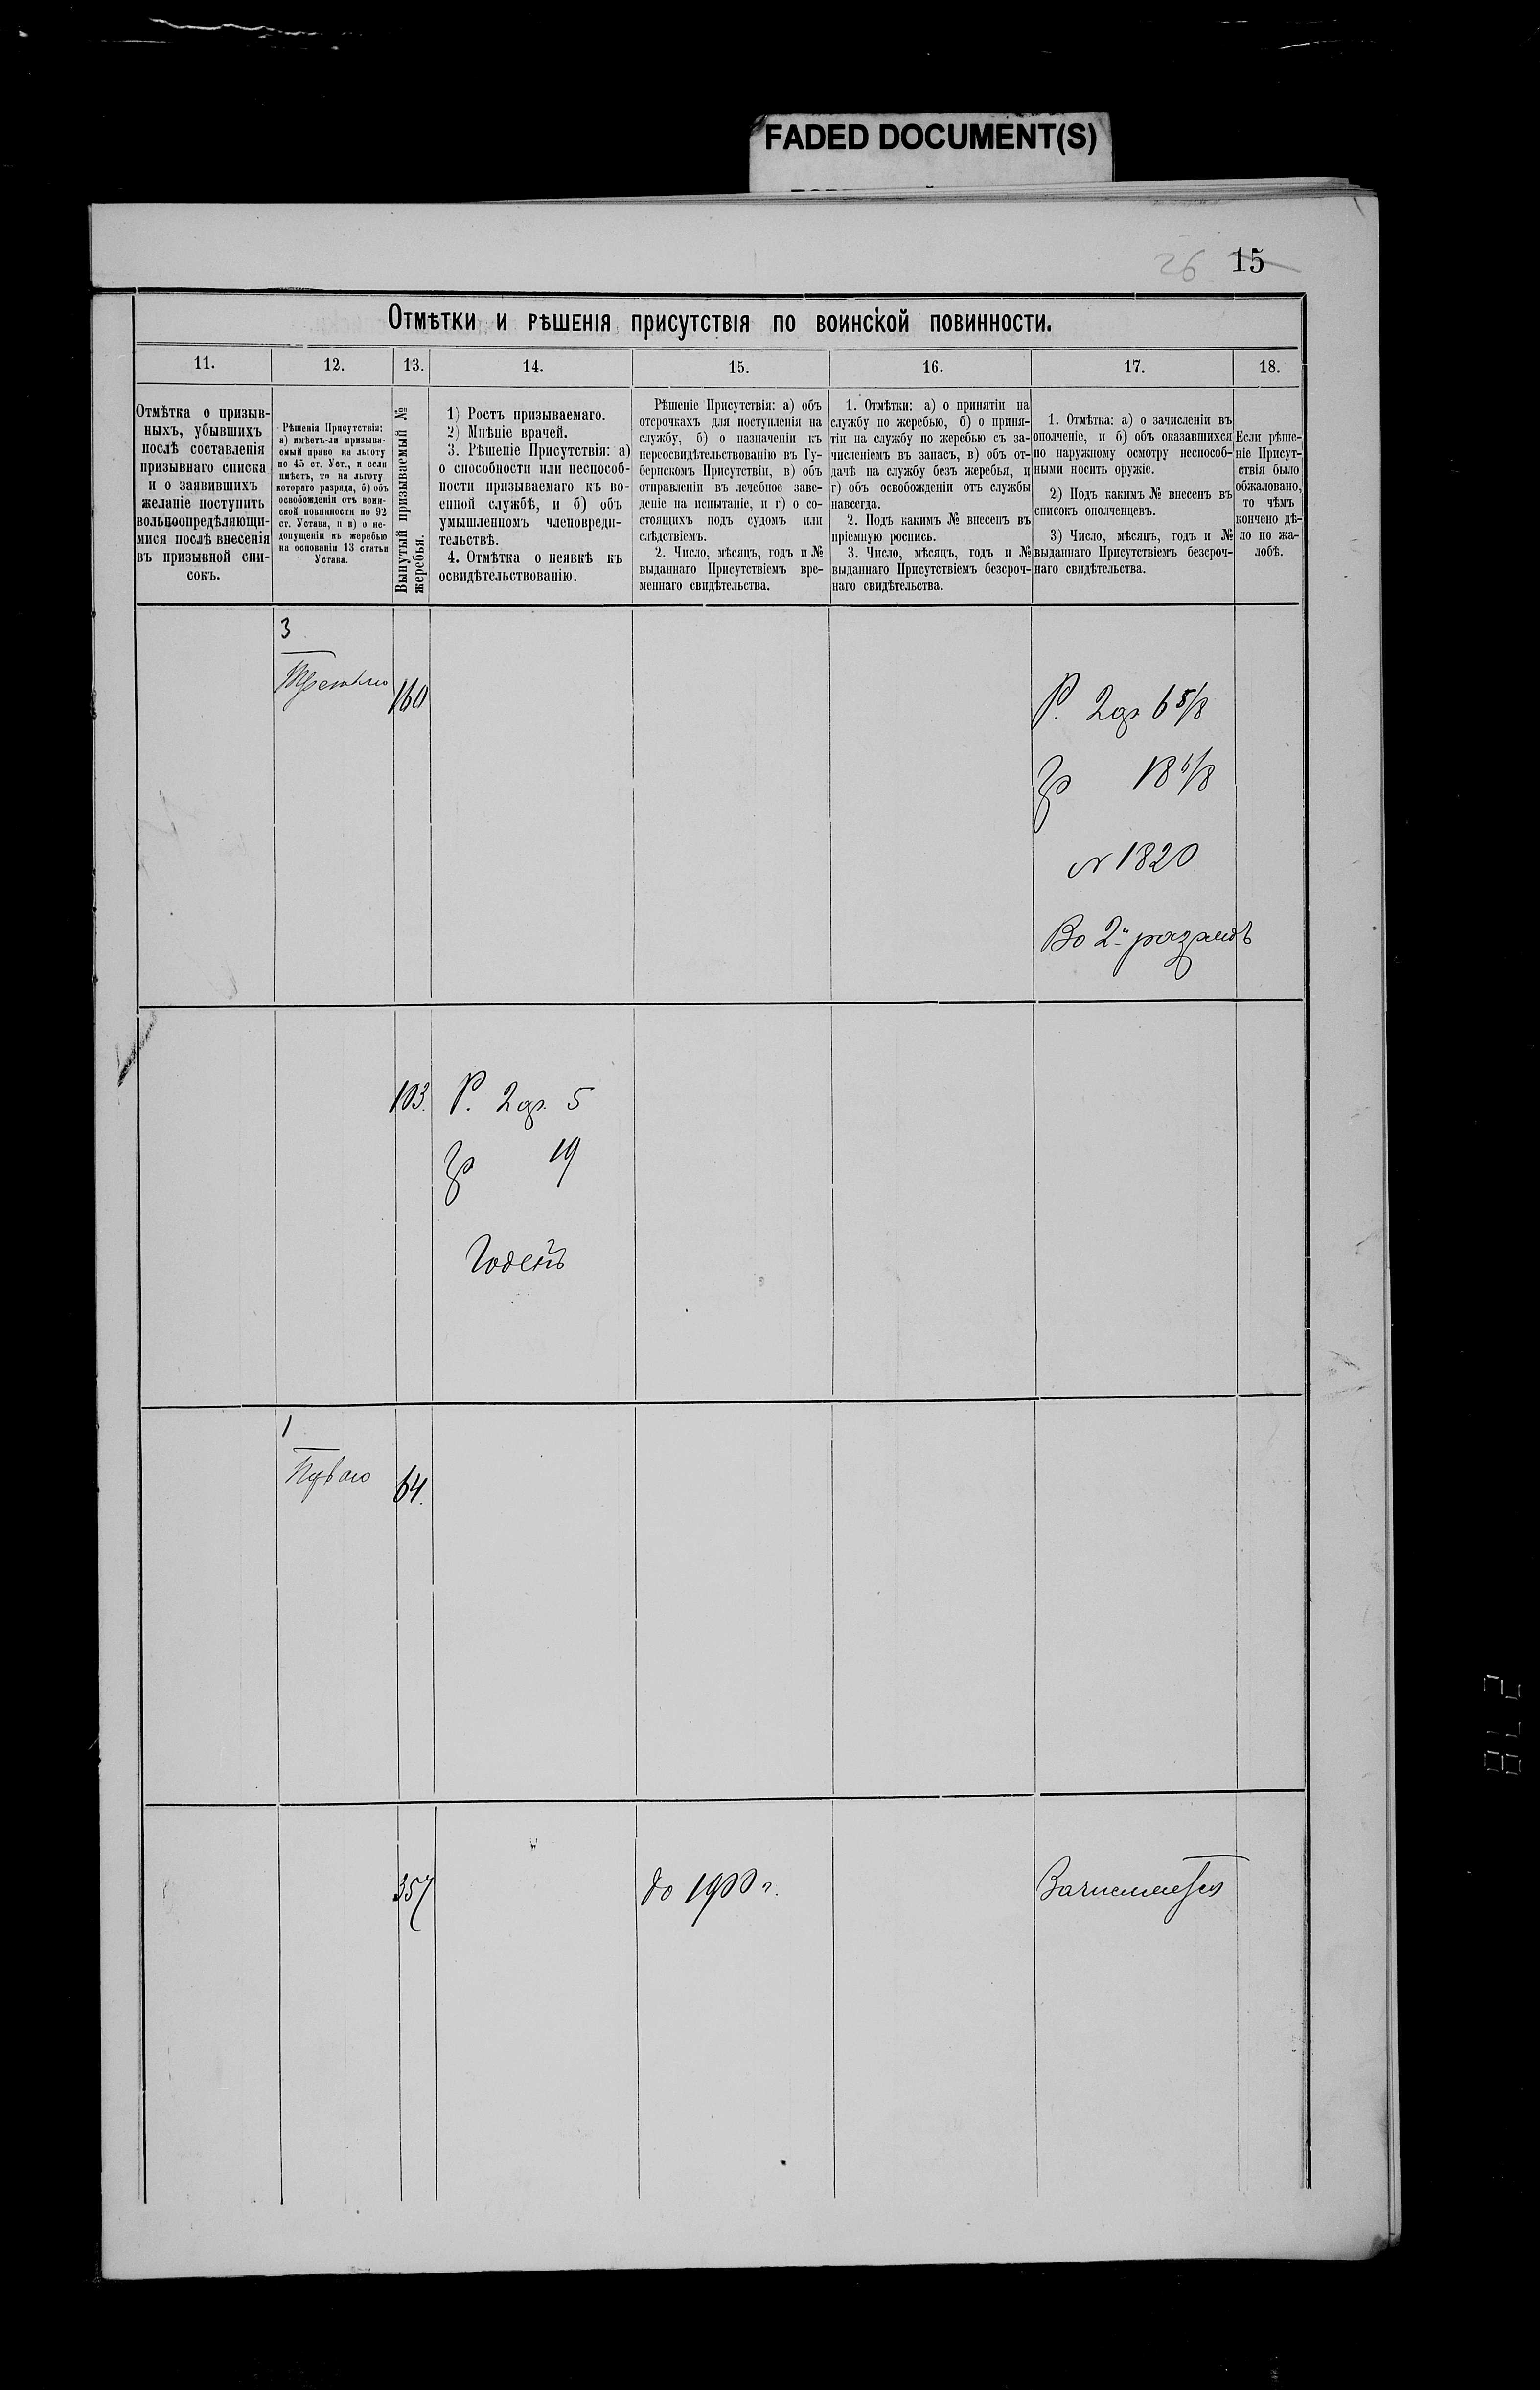 FADED DOCUMENT(S)
26 15
Отмѣтки и рѣшенія присутствія по воинской повинности.
11. 12. 13. 14. 15. 16. 17. 18.
Отмѣтка о призыв-
ныхъ, убывшихъ
послѣ составленія
призывнаго списка
и о заявившихъ
желаніе поступить
вольноопредѣляющи-
мися послѣ внесенія
въ призывной спи-
сокъ.
Рѣшенія Присутствія:
а) имѣетъ-ли призыва-
емый право на льготу
по 45 ст. Уст., и если
имѣетъ, то на льготу
котораго разряда, б) объ
освобожденіи отъ воин-
ской повинности по 92
ст. Устава, и в) о не-
допущеніи къ жеребью
на основаніи 13 статьи
Устава.
Вынутый призываемый №
жеребья.
1) Ростъ призываемаго.
2) Мнѣніе врачей.
3. Рѣшеніе Присутствія: а)
о способности или неспособ-
ности призываемаго къ во-
енной службѣ, и б) объ
умышленномъ членовреди-
тельствѣ.
4. Отмѣтка о неявкѣ къ
освидѣтельствованію.
Рѣшеніе Присутствія: а) объ
отсрочкахъ для поступленія на
службу, б) о назначеніи къ
переосвидѣтельствованію въ Гу-
бернскомъ Присутствіи, в) объ
отправленіи въ лечебное заве-
деніе на испытаніе, и г) о со-
стоящихъ подъ судомъ или
слѣдствіемъ.
2. Число, мѣсяцъ, годъ и №
выданнаго Присутствіемъ вре-
меннаго свидѣтельства.
1. Отмѣтки: а) о принятіи на
службу по жеребью, б) о приня-
тіи на службу по жеребью съ за-
численіемъ въ запасъ, в) объ от-
дачѣ на службу безъ жеребья, и
г) объ освобожденіи отъ службы
навсегда.
2. Подъ какимъ № внесенъ въ
пріемную роспись.
3. Число, мѣсяцъ, годъ и №
выданнаго Присутствіемъ безсроч-
наго свидѣтельства.
1. Отмѣтка: а) о зачисленіи въ
ополченіе, и б) объ оказавшихся
по наружному осмотру неспособ-
ными носить оружіе.
2) Подъ какимъ № внесенъ въ
списокъ ополченцевъ.
3) Число, мѣсяцъ, годъ и №
выданнаго Присутствіемъ безсроч-
наго свидѣтельства.
Если рѣше-
ніе Присут-
ствія было
обжаловано,
то чѣмъ
кончено дѣ-
ло по жа-
лобѣ.
3
160
Р. 2 ар 6 5/8
Гр 18 6/8
N 1820
Во 2й разрядъ
103. Р. 2 ар. 5
Гр 19
Годенъ
1
64.
357 до 1900 г.
278